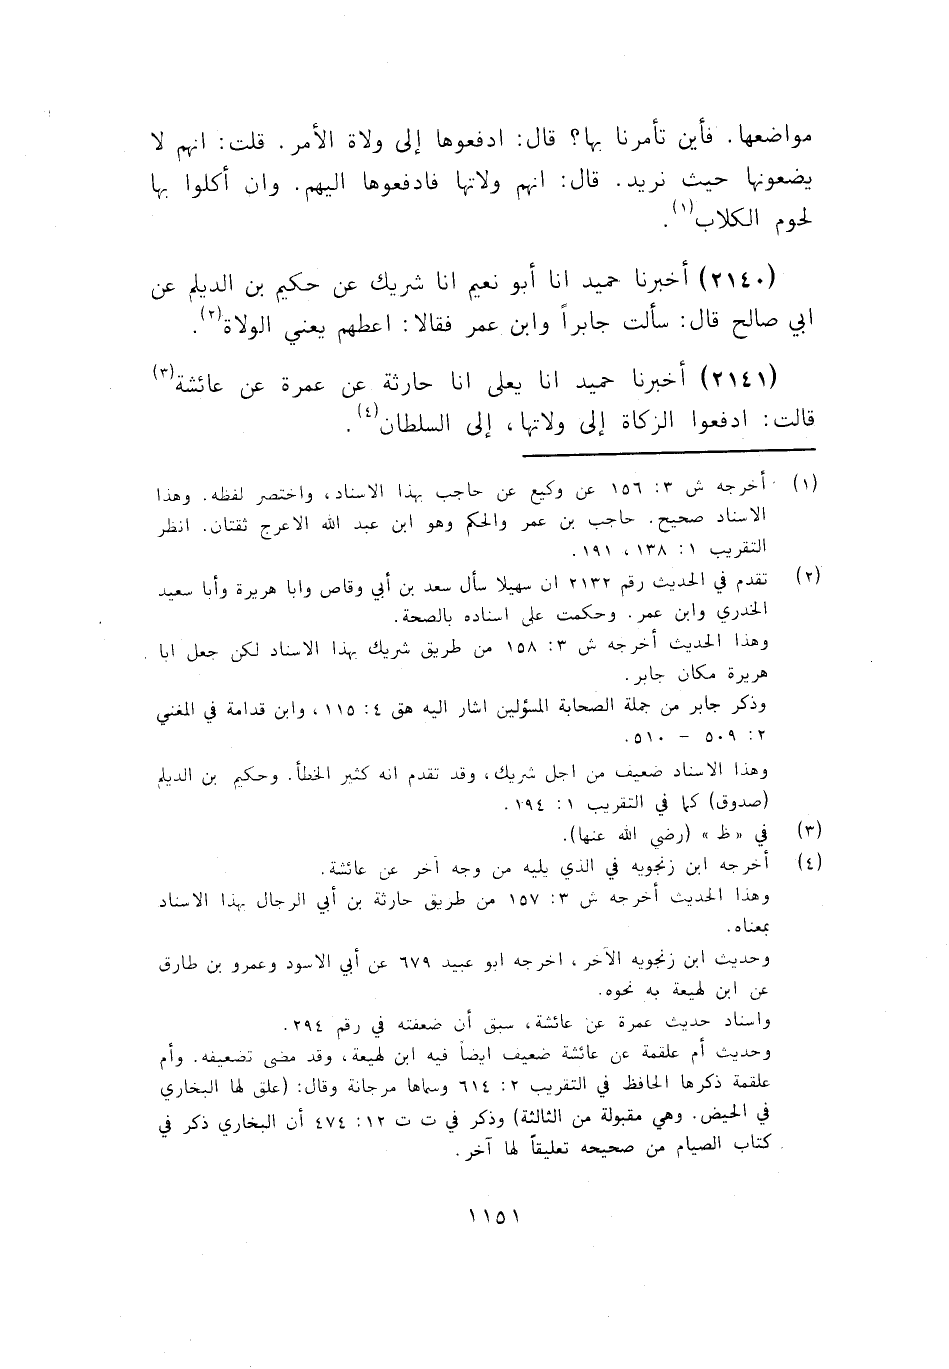 مواضعها. فأين تأمرنا بها؟ قال: ادفعوها إلى ولاة الأمر. قلت: انهم لا
يضعونها حيث نريد. قال: انهم ولاتها فادفعوها اليهم. وان أكلوا بها
لحوم الكلاب(١).
(٢١٤٠) أخبرنا حميد انا أبو نعيم انا شريك عن حكيم بن الديلم عن
ابي صالح قال: سألت جابراً وابن عمر فقالا: اعطهم يعني الولاة(٢).
(٢١٤١) أخبرنا حميد انا يعلى انا حارثة عن عمرة عن عائشة(٣)
قالت: ادفعوا الزكاة إلى ولاتها، إلى السلطان(٤).
(١) أخرجه ش ٣: ١٥٦ عن وكيع عن حاجب بهذا الاسناد، واختصر لفظه. وهذا
الاسناد صحيح. حاجب بن عمر والحكم وهو ابن عبد الله الاعرج ثقتان. انظر
التقريب ١: ١٣٨، ١٩١.
(٢) تقدم في الحديث رقم ٢١٣٢ ان سهيلا سأل سعد بن أبي وقاص وابا هريرة وأبا سعيد
الخدري وابن عمر. وحكمت على اسناده بالصحة.
وهذا الحديث أخرجه ش ٣: ١٥٨ من طريق شريك بهذا الاسناد لكن جعل ابا
هريرة مكان جابر.
وذكر جابر من جملة الصحابة المسؤلين اشار اليه هق ٤: ١١٥، وابن قدامة في المغني
٢: ٥٠٩ - ٥١٠.
وهذا الاسناد ضعيف من اجل شريك، وقد تقدم انه كثير الخطأ. وحكيم بن الديلم
(صدوق) كما في التقريب ١: ١٩٤.
(٣) في «ظ» (رضي الله عنها).
(٤) أخرجه ابن زنجويه في الذي يليه من وجه آخر عن عائشة.
وهذا الحديث أخرجه ش ٣: ١٥٧ من طريق حارثة بن أبي الرجال بهذا الاسناد
بمعناه.
وحديث ابن زنجويه الآخر، اخرجه ابو عبيد ٦٧٩ عن أبي الاسود وعمرو بن طارق
عن ابن لهيعة به نحوه.
واسناد حديث عمرة عن عائشة، سبق أن ضعفته في رقم ٢٩٤.
وحديث أم علقمة عن عائشة ضعيف ايضاً فيه ابن لهيعة، وقد مضى تضعيفه. وأم
علقمة ذكرها الحافظ في التقريب ٢: ٦١٤ وسماها مرجانة وقال: (علق لها البخاري
في الحيض. وهي مقبولة من الثالثة) وذكر في ت ت ١٢: ٤٧٤ أن البخاري ذكر في
كتاب الصيام من صحيحه تعليقاً لها آخر.
١١٥١